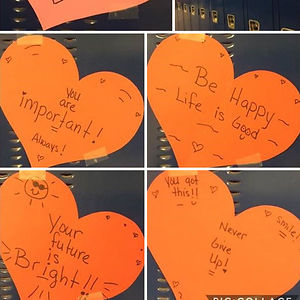 You
are
important!
Always!
Be Happy
Life is Good
Your
future
is
Bright!!
You got
this!!
Never
Give
Up!
Smile!
PIC COLLAGE